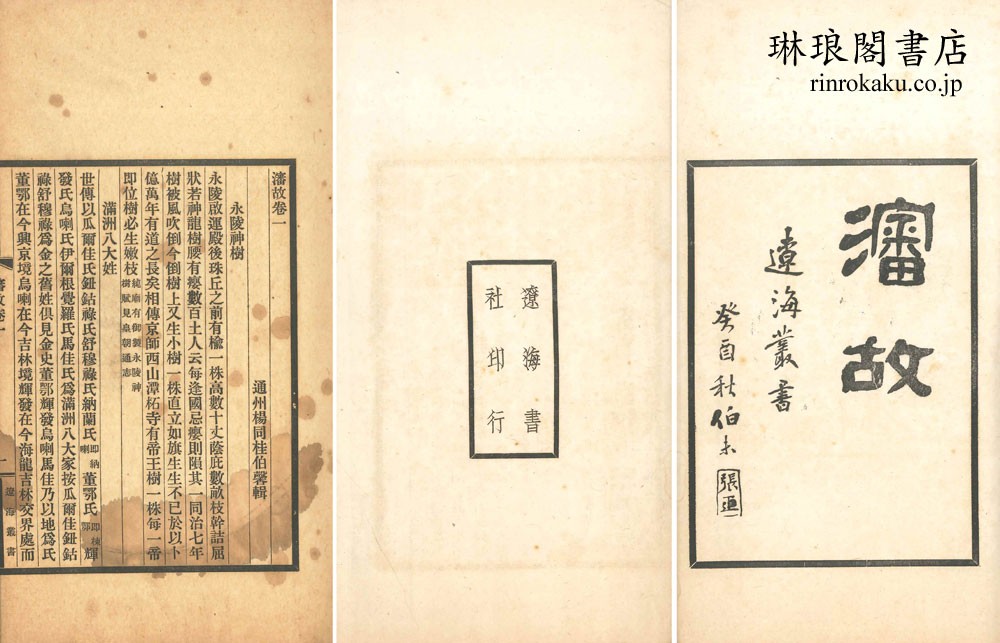 琳琅閣書店
rinrokaku.co.jp
瀋故
遼海叢書
癸酉秋伯未
張
遼海書
社印行
瀋故卷一
通州楊同桂伯馨輯
永陵神樹
永陵啟運殿後珠丘之前有榆一株高數十丈蔭庇數畝枝幹詰屈
狀若神龍樹腰有癭數百土人云每逢國忌癭則隕其一同治七年
樹被風吹倒今倒樹上又生小樹一株直立如旗生生不已於以卜
億萬年有道之長矣相傳京師西山潭柘寺有帝王樹一株每一帝
即位樹必生嫩枝純廟有御製永陵神樹賦見皇朝通志
滿洲八大姓
世傳以瓜爾佳氏鈕鈷祿氏舒穆祿氏納蘭氏即納喇董鄂氏即棟鄂輝
發氏烏喇氏伊爾根覺羅氏馬佳氏為滿洲八大家按瓜爾佳鈕鈷
祿舒穆祿為金之舊姓俱見金史董鄂輝發烏喇馬佳乃以地為氏
董鄂在今興京境烏喇在今吉林境輝發在今海龍吉林交界處而
瀋故卷一
一
遼海叢書